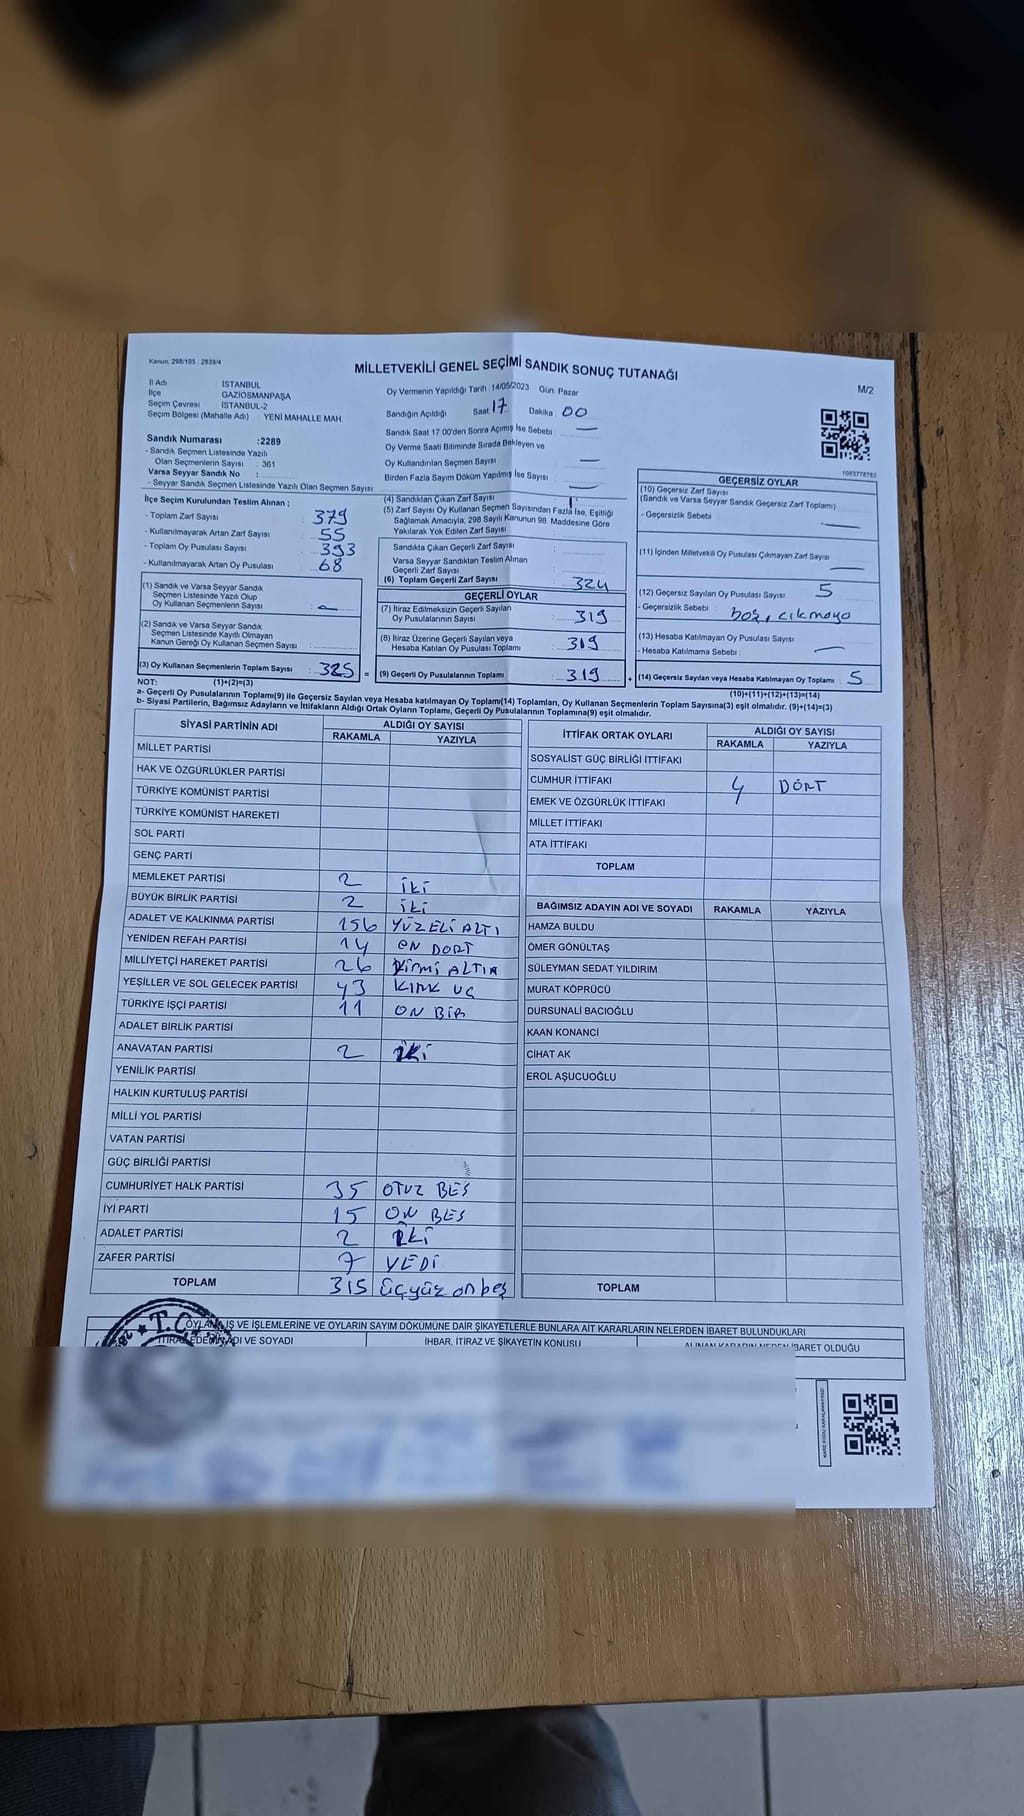 Kanun, 298/105 , 2839/4
MİLLETVEKİLİ GENEL SEÇİMİ SANDIK SONUÇ TUTANAĞI
M/2
İl Adı : İSTANBUL
İlçe : GAZİOSMANPAŞA
Seçim Çevresi : İSTANBUL-2
Seçim Bölgesi (Mahalle Adı) : YENİ MAHALLE MAH
Sandık Numarası :2289
- Sandık Seçmen Listesinde Yazılı
Olan Seçmenlerin Sayısı : 361
Varsa Seyyar Sandık No :
- Seyyar Sandık Seçmen Listesinde Yazılı Olan Seçmen Sayısı:
Oy Vermenin Yapıldığı Tarih : 14/05/2023 Gün: Pazar
Sandığın Açıldığı Saat 17 Dakika : 00
Sandık Saat 17:00'den Sonra Açımış İse Sebebi : —
Oy Verme Saati Bitiminde Sırada Bekleyen ve
Oy Kullandırılan Seçmen Sayısı : —
Birden Fazla Sayım Döküm Yapılmış İse Sayısı : —
1083778783
İlçe Seçim Kurulundan Teslim Alınan ;
- Toplam Zarf Sayısı : 379
- Kullanılmayarak Artan Zarf Sayısı : 55
- Toplam Oy Pusulası Sayısı : 393
- Kullanılmayarak Artan Oy Pusulası : 68
(1) Sandık ve Varsa Seyyar Sandık
Seçmen Listesinde Yazılı Olup
Oy Kullanan Seçmenlerin Sayısı :
(2) Sandık ve Varsa Seyyar Sandık
Seçmen Listesinde Kayıtlı Olmayan
Kanun Gereği Oy Kullanan Seçmen Sayısı :
(3) Oy Kullanan Seçmenlerin Toplam Sayısı : 325 =
(4) Sandıktan Çıkan Zarf Sayısı :
(5) Zarf Sayısı Oy Kullanan Seçmen Sayısından Fazla İse, Eşitliği
Sağlamak Amacıyla; 298 Sayılı Kanunun 98. Maddesine Göre
Yakılarak Yok Edilen Zarf Sayısı :
Sandıkta Çıkan Geçerli Zarf Sayısı :
Varsa Seyyar Sandıktan Teslim Alınan
Geçerli Zarf Sayısı :
(6) Toplam Geçerli Zarf Sayısı : 324
GEÇERLİ OYLAR
(7) İtiraz Edilmeksizin Geçerli Sayılan
Oy Pusulalarının Sayısı : 319
(8) İtiraz Üzerine Geçerli Sayılan veya
Hesaba Katılan Oy Pusulası Toplamı : 319
(9) Geçerli Oy Pusulalarının Toplamı : 319 +
GEÇERSİZ OYLAR
(10) Geçersiz Zarf Sayısı
(Sandık ve Varsa Seyyar Sandık Geçersiz Zarf Toplamı)
- Geçersizlik Sebebi : —
(11) İçinden Milletvekili Oy Pusulası Çıkmayan Zarf Sayısı
: —
(12) Geçersiz Sayılan Oy Pusulası Sayısı : 5
- Geçersizlik Sebebi : boş, çıkmayo
(13) Hesaba Katılmayan Oy Pusulası Sayısı :
- Hesaba Katılmama Sebebi : —
(14) Geçersiz Sayılan veya Hesaba Katılmayan Oy Toplamı : 5
NOT: (1)+(2)=(3) (10)+(11)+(12)+(13)=(14)
a- Geçerli Oy Pusulalarının Toplamı(9) ile Geçersiz Sayılan veya Hesaba katılmayan Oy Toplamı(14) Toplamları, Oy Kullanan Seçmenlerin Toplam Sayısına(3) eşit olmalıdır. (9)+(14)=(3)
b- Siyasi Partilerin, Bağımsız Adayların ve İttifakların Aldığı Ortak Oyların Toplamı, Geçerli Oy Pusulalarının Toplamına(9) eşit olmalıdır.
SİYASİ PARTİNİN ADI ALDIĞI OY SAYISI
RAKAMLA YAZIYLA
MİLLET PARTİSİ
HAK VE ÖZGÜRLÜKLER PARTİSİ
TÜRKİYE KOMÜNİST PARTİSİ
TÜRKİYE KOMÜNİST HAREKETİ
SOL PARTİ
GENÇ PARTİ
MEMLEKET PARTİSİ 2 İKİ
BÜYÜK BİRLİK PARTİSİ 2 İKİ
ADALET VE KALKINMA PARTİSİ 156 YÜZELİ ALTI
YENİDEN REFAH PARTİSİ 14 ON DÖRT
MİLLİYETÇİ HAREKET PARTİSİ 26 YİRMİ ALTI
YEŞİLLER VE SOL GELECEK PARTİSİ 43 KIRK ÜÇ
TÜRKİYE İŞÇİ PARTİSİ 11 ON BİR
ADALET BİRLİK PARTİSİ
ANAVATAN PARTİSİ 2 İKİ
YENİLİK PARTİSİ
HALKIN KURTULUŞ PARTİSİ
MİLLİ YOL PARTİSİ
VATAN PARTİSİ
GÜÇ BİRLİĞİ PARTİSİ
CUMHURİYET HALK PARTİSİ 35 OTUZ BEŞ
İYİ PARTİ 15 ON BEŞ
ADALET PARTİSİ 2 İKİ
ZAFER PARTİSİ 7 YEDİ
TOPLAM 315 üçyüz on beş
İTTİFAK ORTAK OYLARI ALDIĞI OY SAYISI
RAKAMLA YAZIYLA
SOSYALİST GÜÇ BİRLİĞİ İTTİFAKI
CUMHUR İTTİFAKI 4 DÖRT
EMEK VE ÖZGÜRLÜK İTTİFAKI
MİLLET İTTİFAKI
ATA İTTİFAKI
TOPLAM
BAĞIMSIZ ADAYIN ADI VE SOYADI RAKAMLA YAZIYLA
HAMZA BULDU
ÖMER GÖNÜLTAŞ
SÜLEYMAN SEDAT YILDIRIM
MURAT KÖPRÜCÜ
DURSUNALİ BACIOĞLU
KAAN KONANCİ
CİHAT AK
EROL AŞUCUOĞLU
TOPLAM
T.C.
OYLAMA İŞ VE İŞLEMLERİNE VE OYLARIN SAYIM DÖKÜMÜNE DAİR ŞİKAYETLERLE BUNLARA AİT KARARLARIN NELERDEN İBARET BULUNDUKLARI
İTİRAZ EDENİN ADI VE SOYADI İHBAR, İTİRAZ VE ŞİKAYETİN KONUSU ALINAN KARARIN NEDEN İBARET OLDUĞU